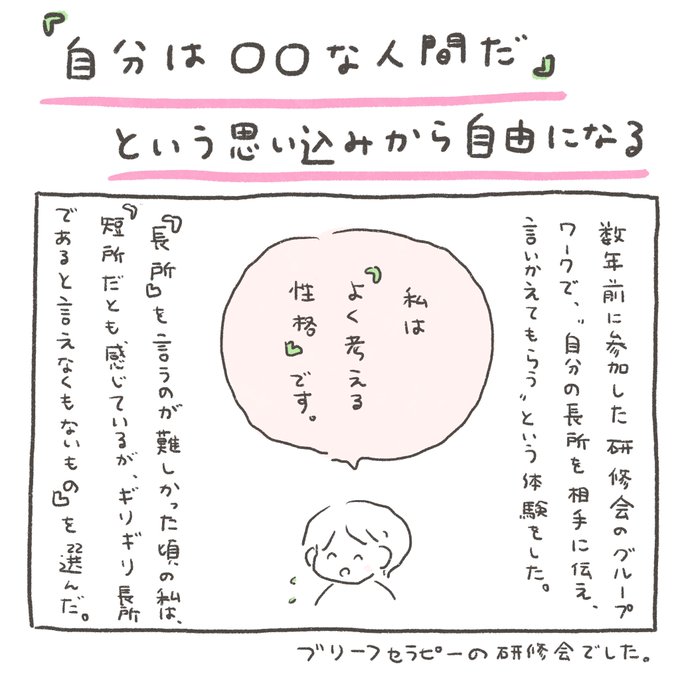 『自分は〇〇な人間だ』
という思い込みから自由になる
数年前に参加した研修会のグループ
ワークで、"自分の長所を相手に伝え、
言いかえてもらう"という体験をした。
私は
『よく考える
性格』です。
『長所』を言うのが難しかった頃の私は、
『短所だとも感じているが、ギリギリ長所
であると言えなくもないもの』を選んだ。
ブリーフセラピーの研修会でした。